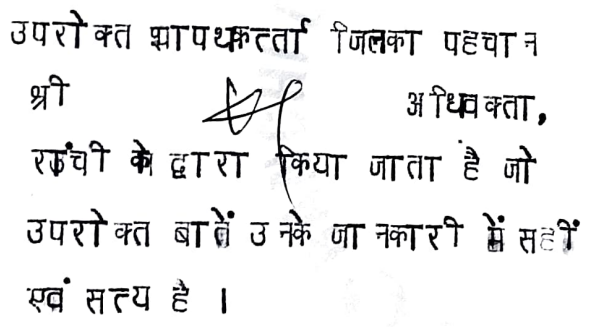 उपरोक्त शपथकर्त्ता जिनका पहचान
श्री अधिवक्ता,
राँची के द्वारा किया जाता है जो
उपरोक्त बातें उनके जानकारी में सहीं
एवं सत्य है ।